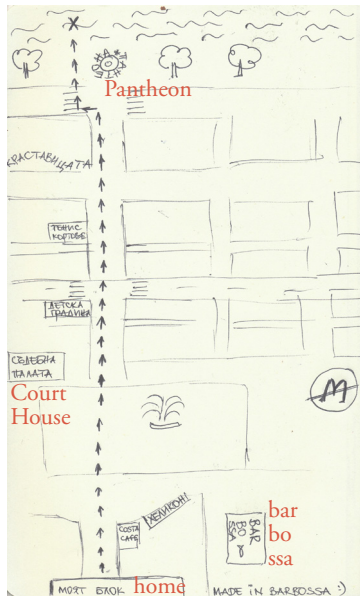 X
ПАНТЕОНА
Pantheon
КРАСТАВИЦАТА
ТЕНИС
КОРТОВЕ
ДЕТСКА
ГРАДИНА
СЪДЕБНА
ПАЛАТА
Court
House
M
ХЕЛИКОН
COSTA
CAFE
BAR
BO
SSA
bar
bo
ssa
МОЯТ БЛОК
home
MADE IN BARBOSSA :)